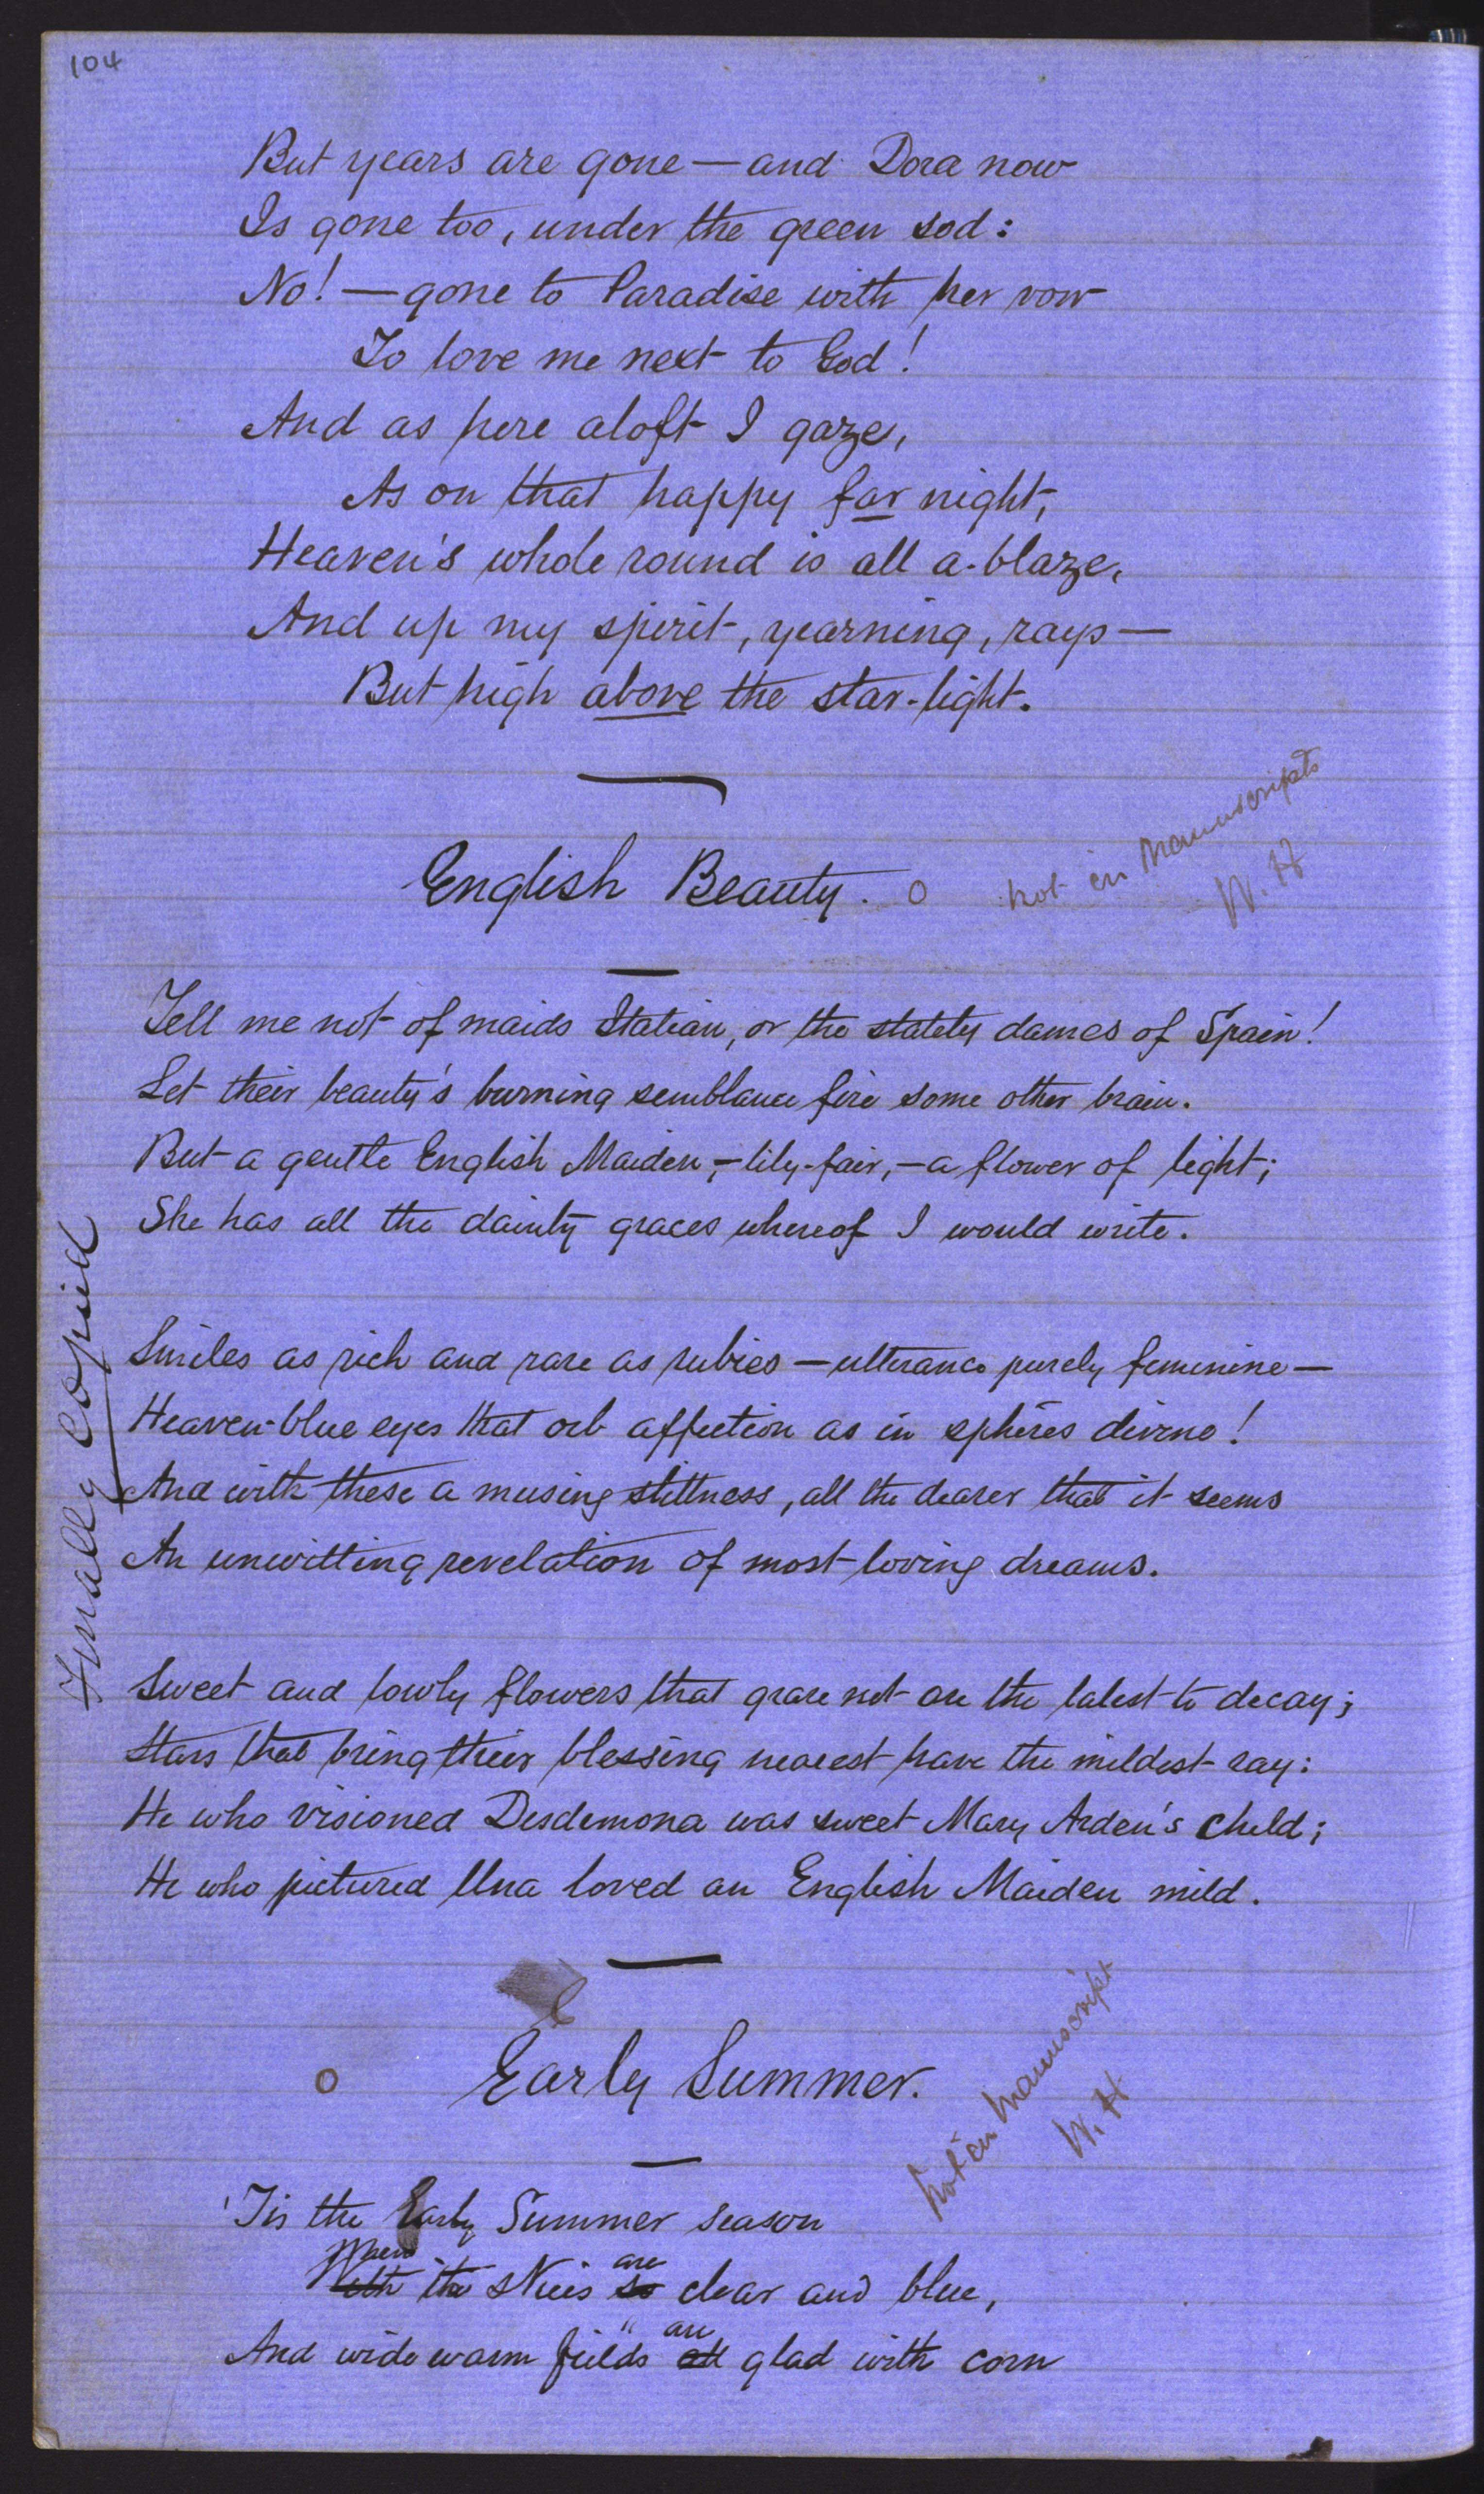 104
But years are gone — and Dora now
Is gone too, under the green sod:
No! — gone to Paradise with her vow
To love me next to God!
And as here aloft I gaze,
As on that happy far night,
Heaven's whole round is all a-blaze,
And up my spirit, yearning, rays —
But high above the star-light.
English Beauty. o
not in Manuscripts
W. H
Tell me not of maids Italian, or the stately dames of Spain!
Let their beauty's burning semblance fire some other brain.
But a gentle English Maiden, — lily-fair, — a flower of light;
She has all the dainty graces whereof I would write.
Finally Copied
Smiles as rich and rare as rubies — utterance purely feminine —
Heaven-blue eyes that orb affection as in spheres divine!
And with these a musing stillness, all the dearer that it seems
An unwitting revelation of most loving dreams.
Sweet and lowly flowers that grace not are the latest to decay;
Stars that bring their blessing nearest have the mildest ray:
He who visioned Desdemona was sweet Mary Arden's child;
He who pictured Una loved an English Maiden mild.
o Early Summer.
not in Manuscript
W. H
'Tis the Early Summer season
When are
With the skies so clear and blue,
are
And wide warm fields all glad with corn